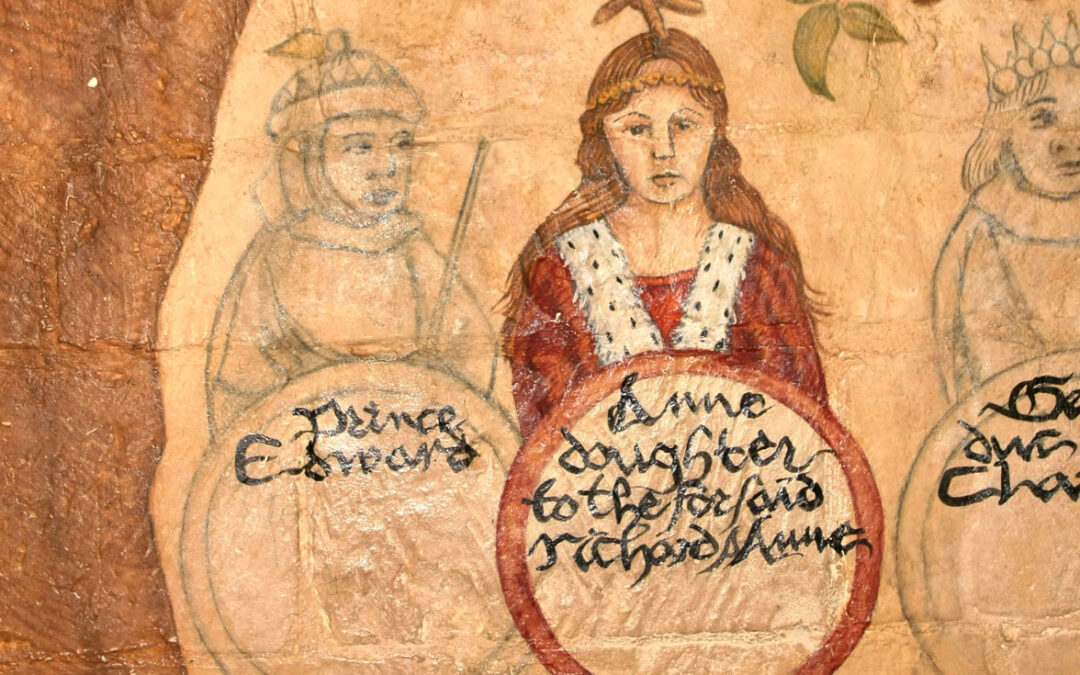 Prince
Edward
Anne
doughter
to the forsaid
richard & Anne
Ge
duc
Cha